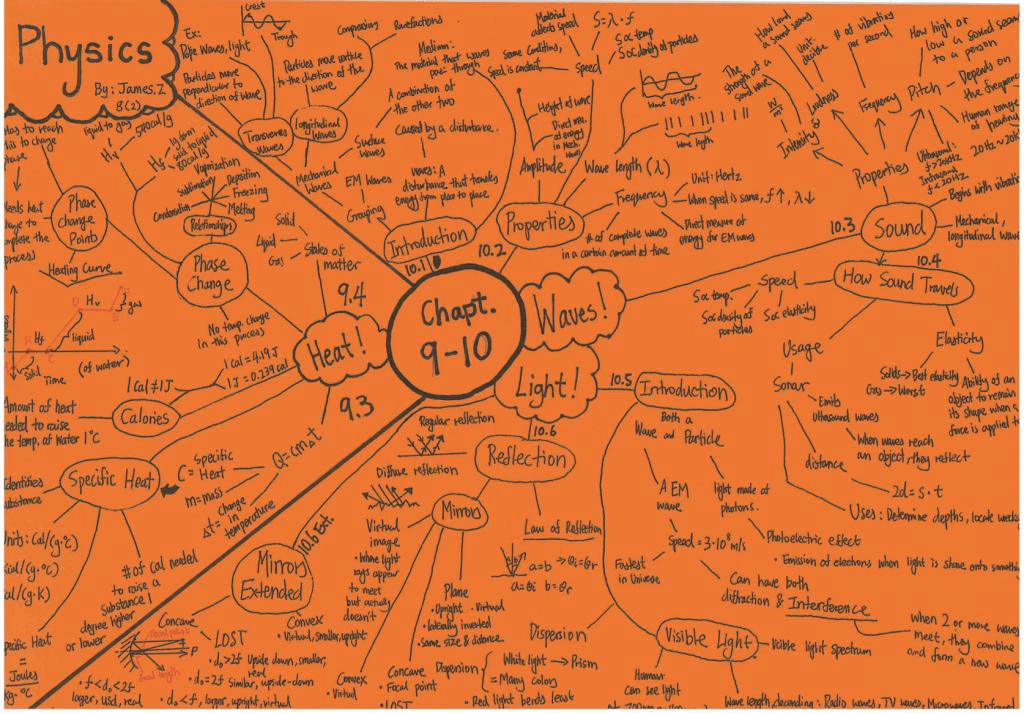 Physics
By: James.Z
8(2)
Chapt.
9-10
Heat!
Waves!
Light!
Ex:
Rope Waves, light
Particles move
perpendicular to
direction of wave.
Crest
Trough
Transverse
Waves
Compressing
Rarefactions
Particles move parallel
to the direction of the
wave.
Longitudinal
Waves
Mechanical
Waves
Surface
Waves
A combination of
the other two
EM Waves
Grouping
Medium:
The material that waves
pass through
Caused by a disturbance.
Waves: A
disturbance that travels
energy from place to place
Introduction
10.1
10.2
Properties
Material
affects speed
Same conditions,
speed is constant
S=λ·f
S∝ temp
S∝ density of particles
Speed
Height of wave
Direct
of energy
in Mech.
Waves
Amplitude
Wave length
Wave length
Wave length (λ)
Frequency
Unit: Hertz
When speed is same, f↑, λ↓
Direct measure of
energy for EM waves
# of complete waves
in a certain amount of time.
10.3
Sound
Properties
How loud
a sound seems
Unit:
decibel
Loudness
The
strength of a
sound wave
W
m²
Intensity
# of vibrations
per second
Frequency
How high or
low a sound seems
to a person
Pitch
Depends on
the frequency
Human range
of hearing
20Hz~20k
Ultrasound:
f>20kHz
Infrasound:
f<20Hz
Begins with vibratio
Mechanical,
longitudinal wave
10.4
How Sound Travels
Speed
S∝ temp.
S∝ density of
particles
S∝ elasticity
Usage
Sonar
Emits
Ultrasound waves
When waves reach
an object, they reflect
distance
2d=s·t
Uses: Determine depths, locate
Elasticity
Solids→Best elasticity
Gas→Worst
Ability of an
object to remain
its shape when a
force is applied t
10.5
Introduction
Both a
Wave and Particle
A EM
wave
Speed=3·10⁸m/s
Fastest
in Universe
light made of
photons.
Photoelectric effect
• Emission of electrons when light is shone onto somethi
Can have both
diffraction & Interference
When 2 or more waves
meet, they combine
and form a new wave
Visible Light
Visible light spectrum
Human
can see light
Wave length, decending: Radio waves, TV waves, Microwaves, Infrared
Dispersion
Dispersion
White light → Prism
= Many colors
• Red light bends least
10.6
Reflection
Regular reflection
Diffuse reflection
Law of Reflection
a=b →θi=θr
a=θi b=θr
Mirrors
Virtual
image
• Where light
rays appear
to meet
but actually
doesn't
Plane
• Upright • Virtual
• laterally inverted
• Same size & distance
Convex
• Virtual
Concave
• Focal point
• LOST
10.6 Ext.
Mirrors
Extended
Concave
Focal point
Focal length
P
• f<d₀<2f
larger, USD, real
LOST
• d₀>2f Upside down, smaller,
real
• d₀=2f Similar, upside-down
• d₀<f, larger, upright, virtual
Convex
• Virtual, smaller, upright
9.4
States of
matter
Solid
Liquid
Gas
Phase
Change
Relationships
Vaporization
Sublimation
Deposition
Condensation
Freezing
Melting
No temp. change
in this process
liquid to gas
540cal/g
Hv
Hf
1g from
solid to liquid
80cal/g
Has to reach
this to change
phase
Phase
Change
Point
Needs heat
to
complete the
process
Heating Curve
Hv
gas
Hf
liquid
Solid
Time
(of water)
9.3
1 Cal = 4.19J
1 J = 0.239cal
1 Cal≠1J
Calories
Amount of heat
needed to raise
the temp. of Water 1°C
Q=cm△t
C= Specific
Heat
m=mass
△t= Change
in
temperature
Specific Heat
Identifies
substance
Units: Cal/(g·°C)
kcal/(g·°C)
cal/(g·K)
# of cal needed
to raise a
substance 1
degree higher
or lower
Specific Heat
=
Joules
Kg·°C